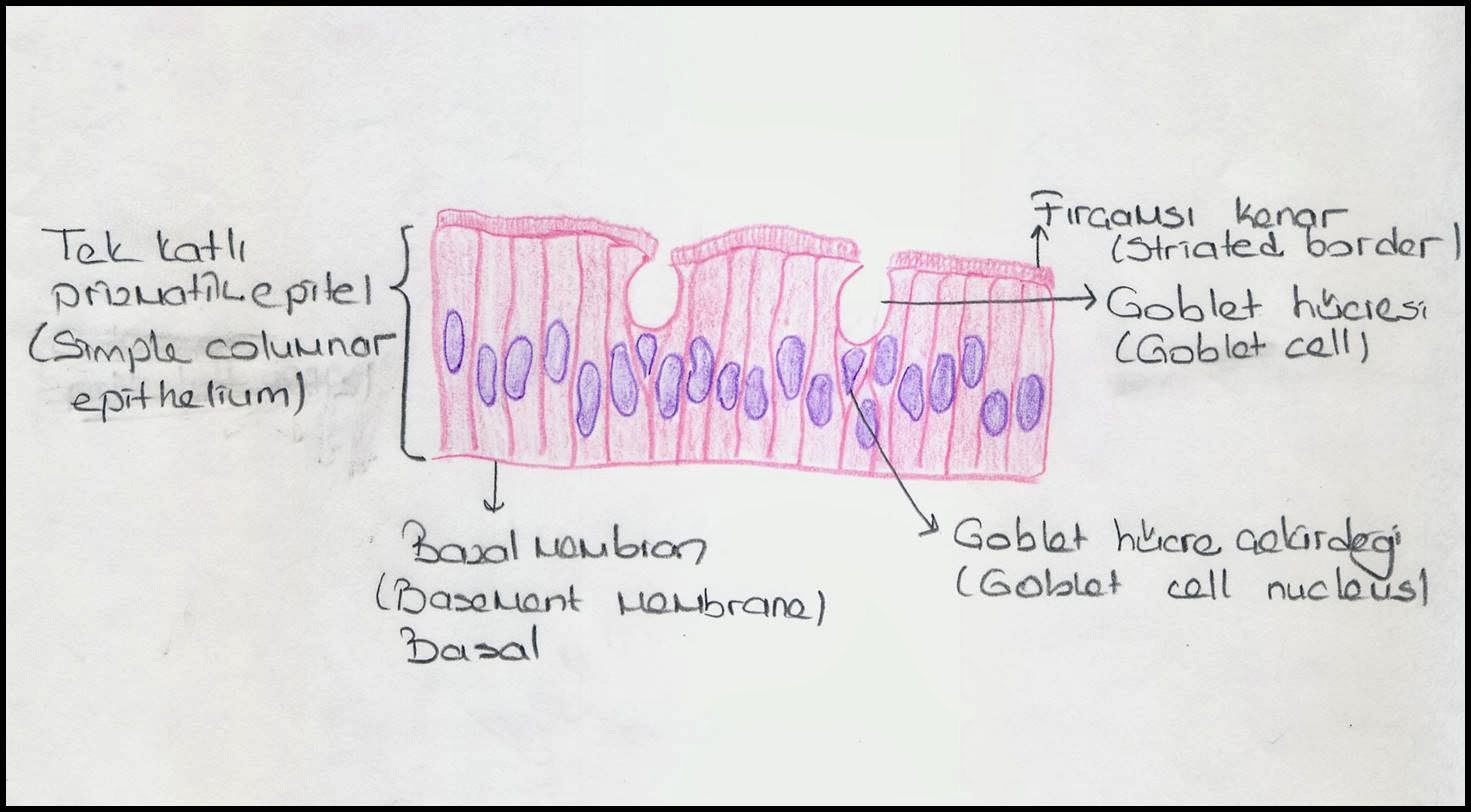 Tek katlı
prizmatik epitel
(Simple columnar
epithelium)
Fırçamsı kenar
(Striated border)
Goblet hücresi
(Goblet cell)
Goblet hücre çekirdegi
(Goblet cell nucleus)
Basal membran
(Basement membrane)
Basal